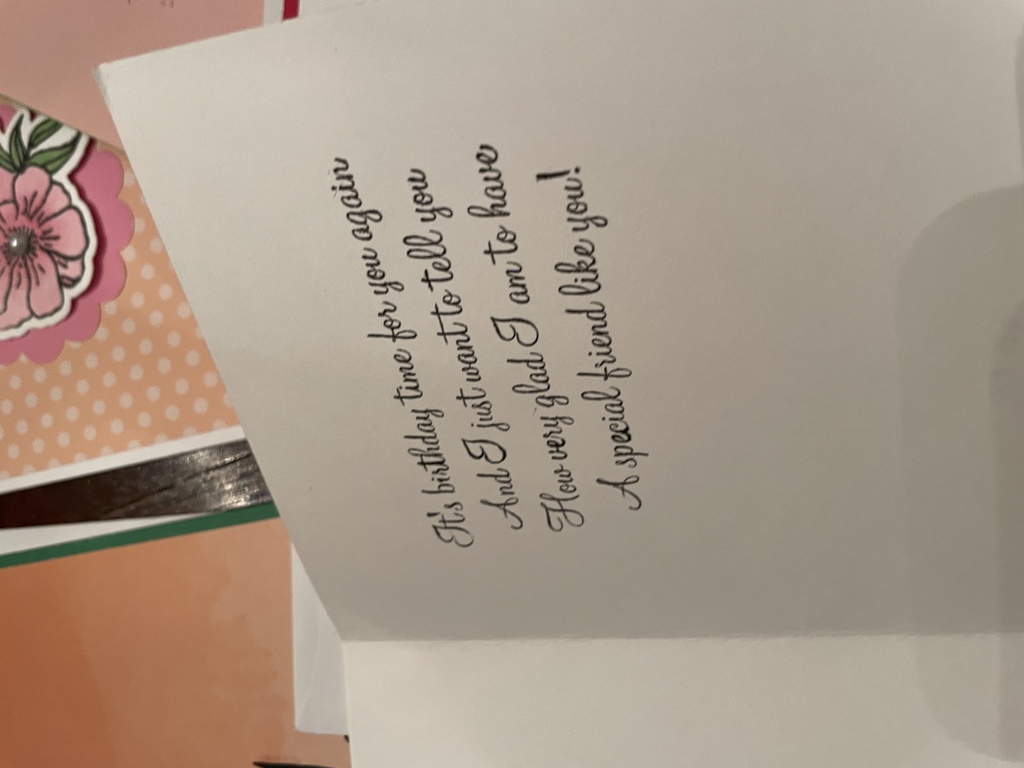 It's birthday time for you again
And I just want to tell you
How very glad I am to have
A special friend like you!